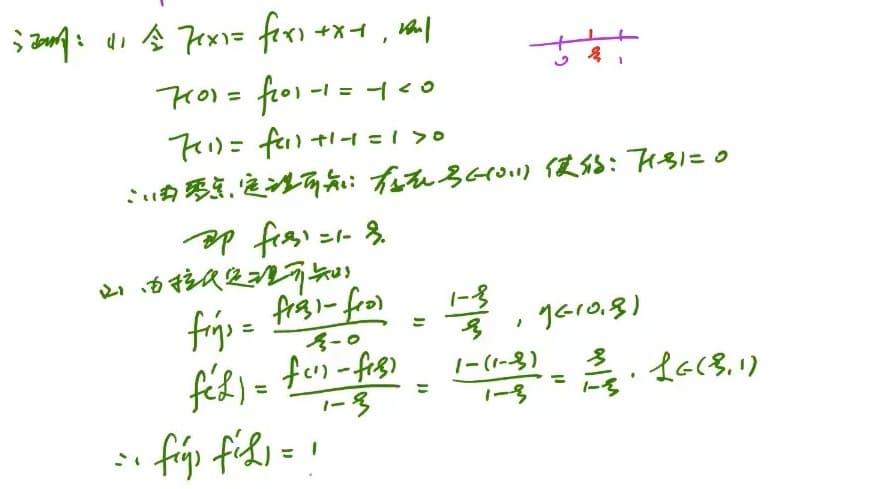 证明: (1) 令 F(x) = f(x) + x - 1, 则
0 ξ 1
F(0) = f(0) - 1 = -1 < 0
F(1) = f(1) + 1 - 1 = 1 > 0
∴ 由零点定理可知: 存在 ξ∈(0,1) 使得: F(ξ) = 0
即 f(ξ) = 1 - ξ.
(2) 由拉氏定理可知
f'(η) = \frac{f(ξ) - f(0)}{ξ - 0} = \frac{1-ξ}{ξ}, η∈(0, ξ)
f'(ζ) = \frac{f(1) - f(ξ)}{1 - ξ} = \frac{1-(1-ξ)}{1-ξ} = \frac{ξ}{1-ξ}. ζ∈(ξ, 1)
∴ f'(η) f'(ζ) = 1